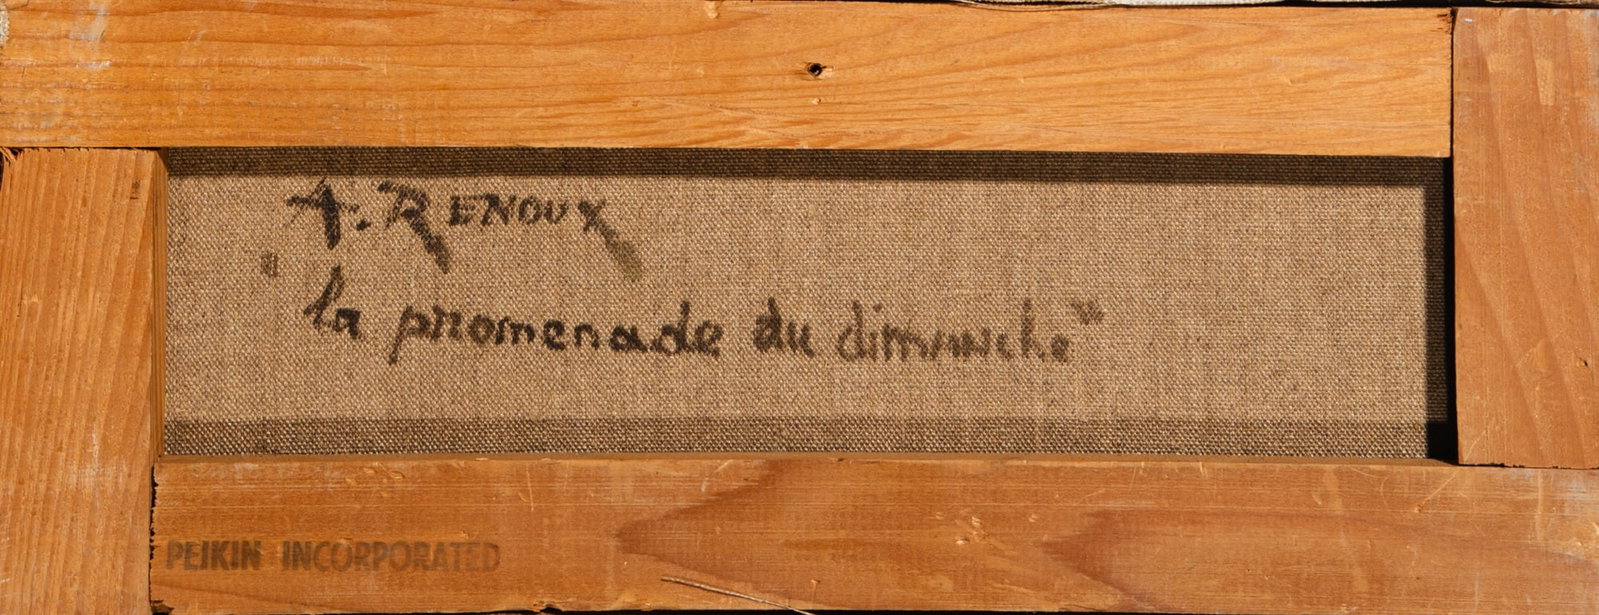 A. RENOUX
"la promenade du dimanche"
PEIKIN INCORPORATED